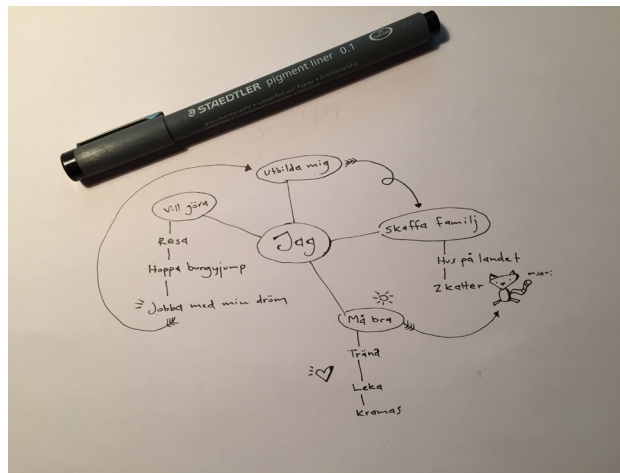 STAEDTLER pigment liner 0.1
utbilda mig
Vill göra
Resa
Hoppa bungyjump
Jobba med min dröm
Jag
Skaffa familj
Hus på landet
2 katter
mjau!
Må bra
Träna
Leka
Kramas